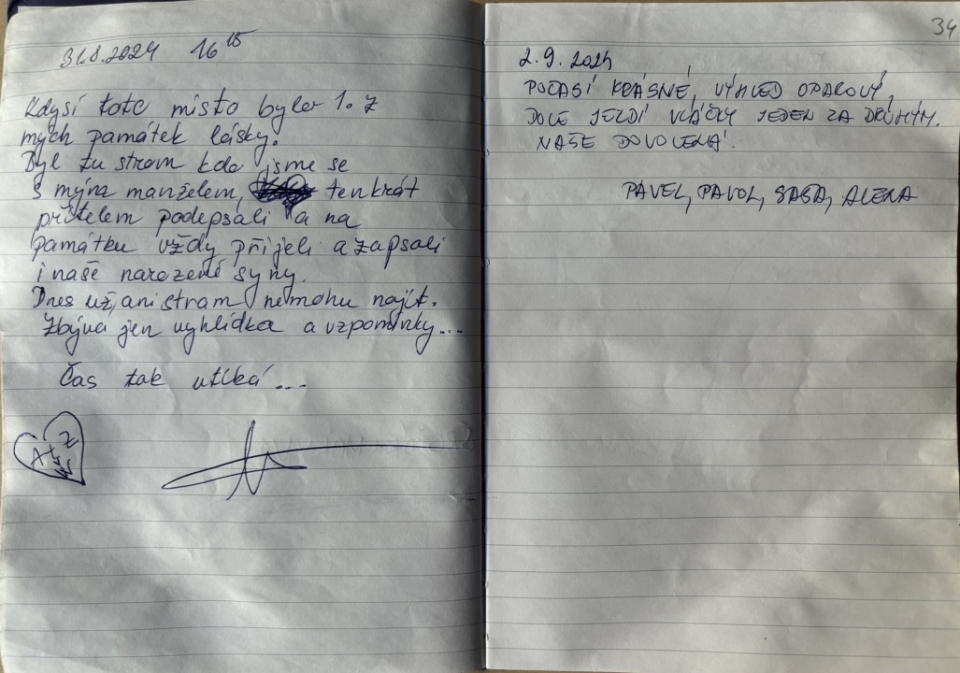 31.8.2024 16 15
Kdysi toto místo bylo 1. z
mých památek lásky.
Byl tu strom kde jsme se
s mým manželem, tenkrát
přítelem podepsali a na
památku vždy přijeli a zapsali
i naše narozené syny.
Dnes už ani strom nemohu najít.
Zbývá jen vyhlídka a vzpomínky...
Čas tak utíká...
34
2.9.2024
POČASÍ KRÁSNÉ, VÝHLED OPAROVÝ,
DOLE JEZDÍ VLÁČKY JEDEN ZA DRUHÝM.
NAŠE DOVOLENÁ!
PAVEL, PAVOL, SAŠA, ALENA